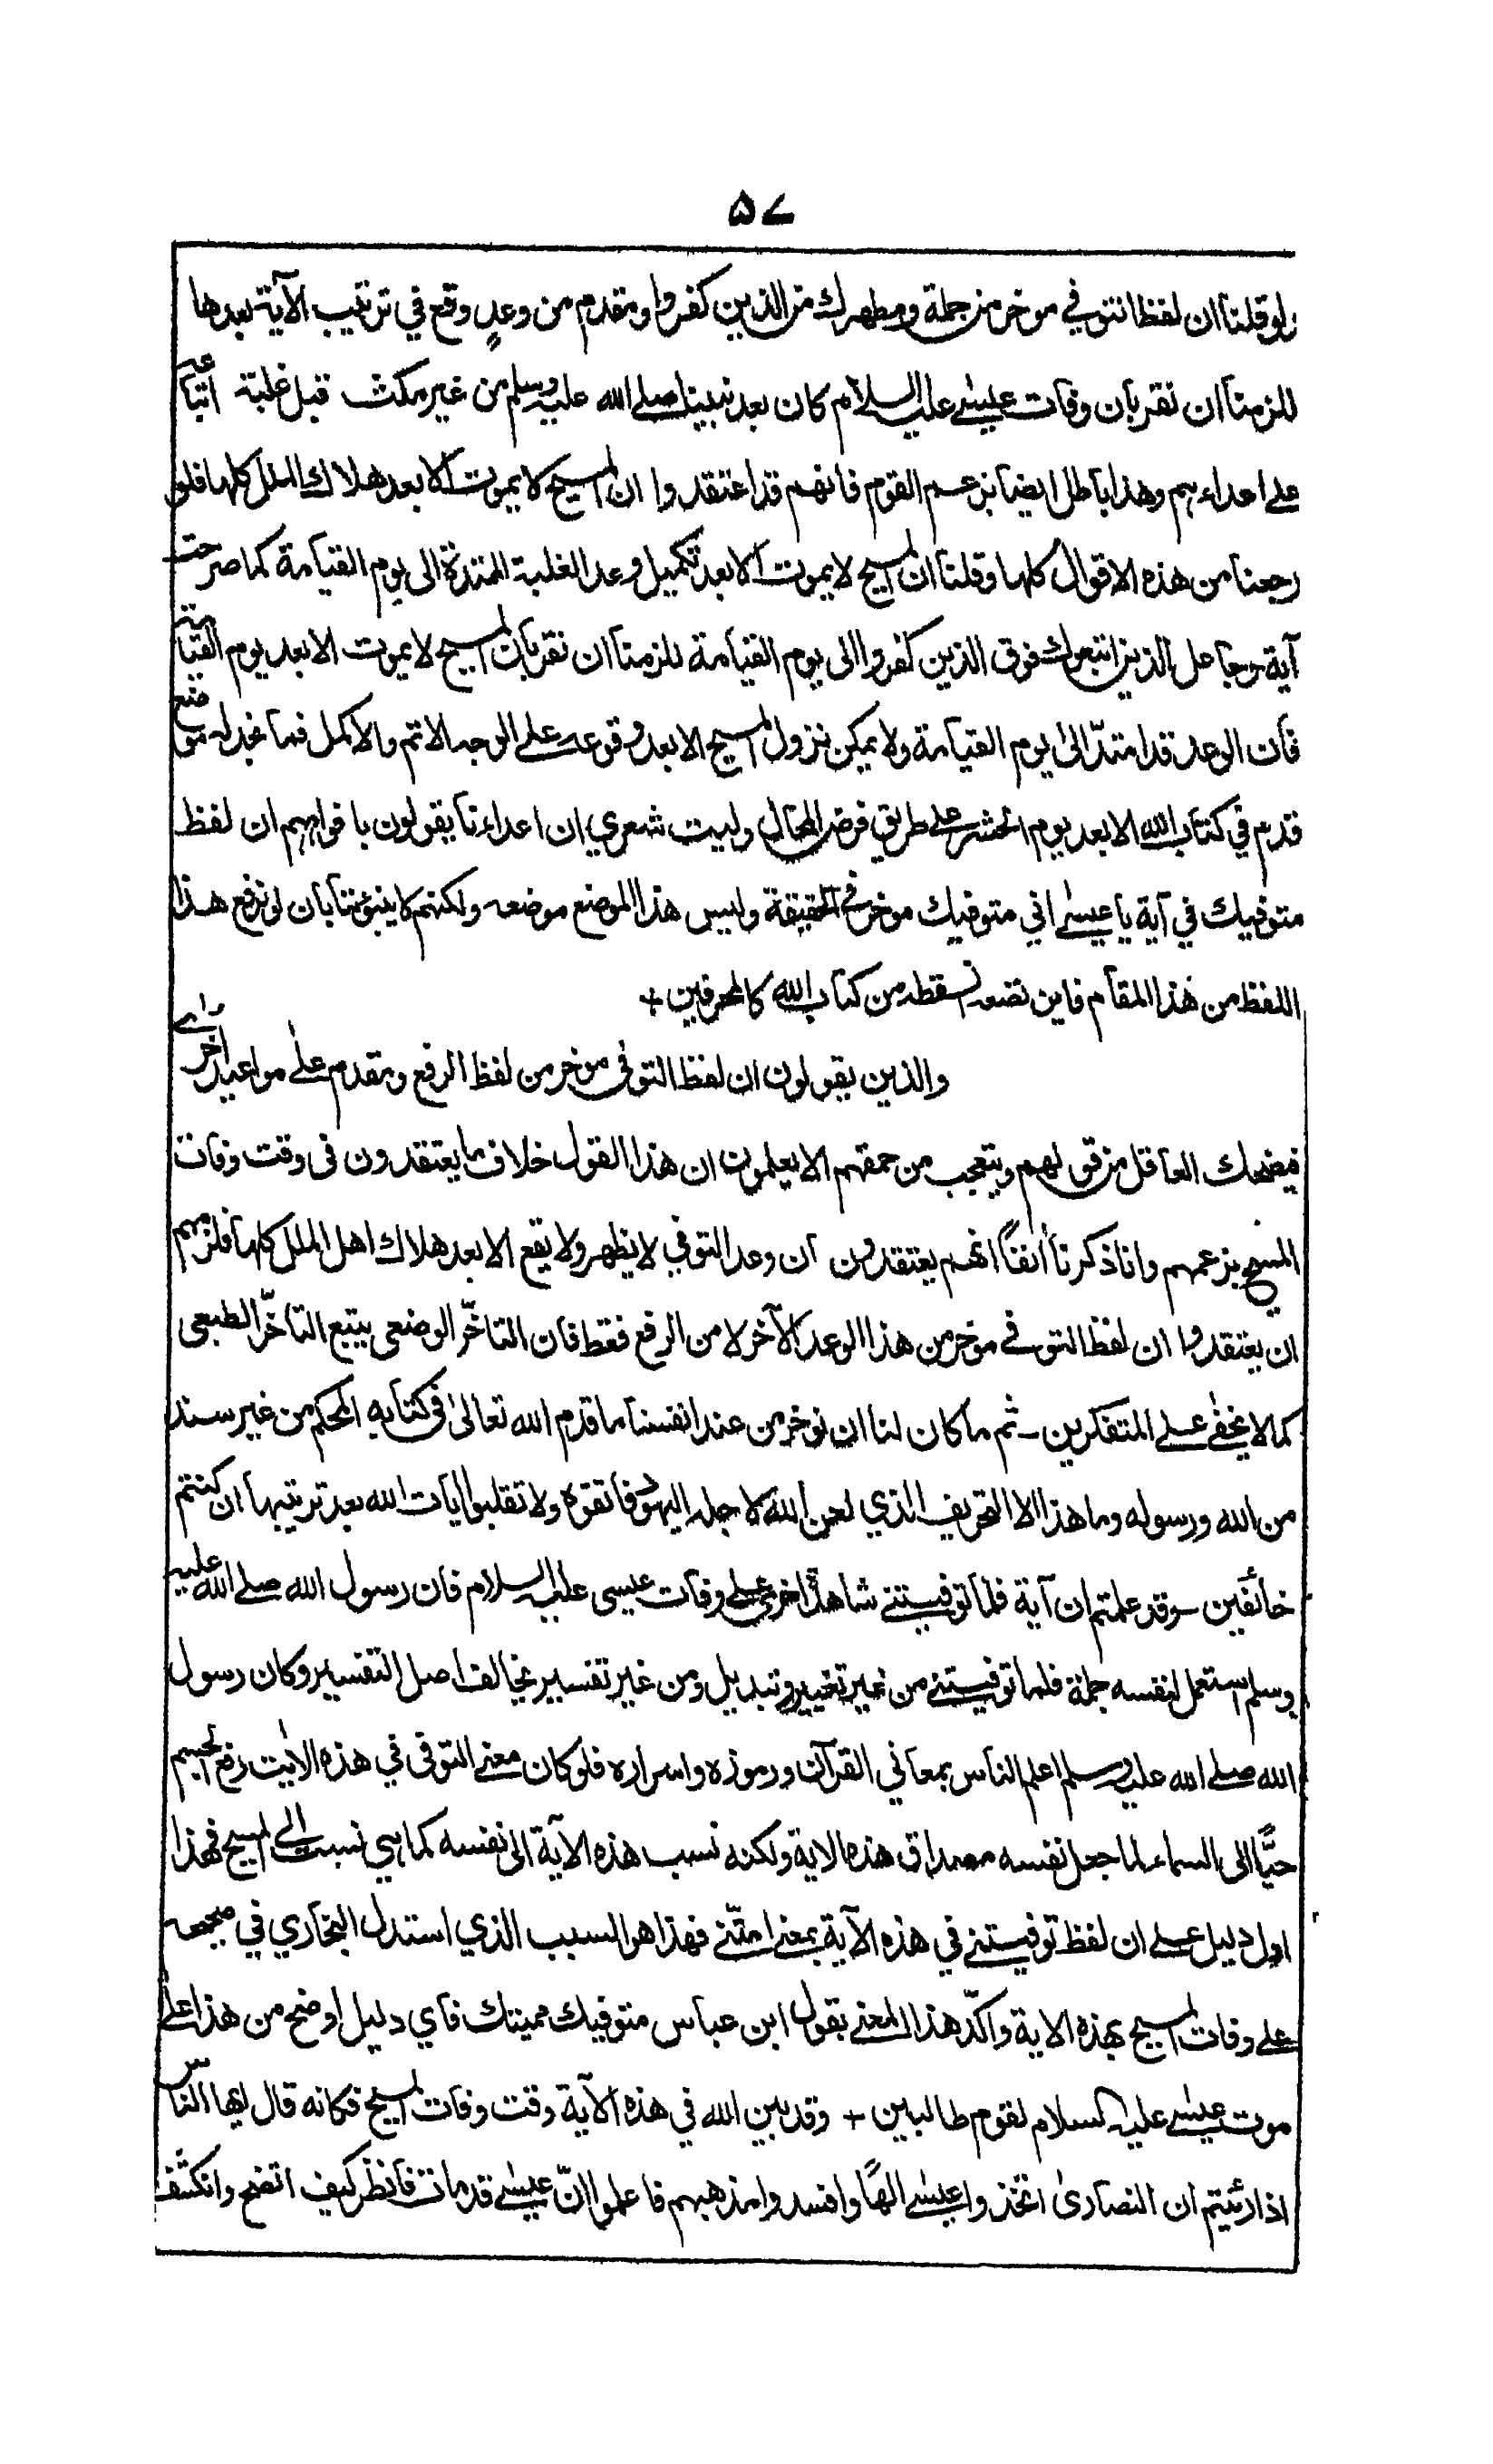 ۵۷
ولو قلنا ان لفظ التوفي موخر من جملة ومطهرك من الذين كفروا ومقدم من وعدٍ وقع في ترتيب الآية بعدها
للزمنا ان نقر بان وفات عيسى عليه السلام كان بعد نبينا صلى الله عليه وسلم من غير مكث قبل غلبة اتباعه
على اعداءهم وهذا باطل ايضا بزعم القوم فانهم قد اعتقدوا ان المسيح لا يموت الا بعد هلاك الملل كلها فلو
رجعنا من هذه الاقوال كلها وقلنا ان المسيح لا يموت الا بعد تكميل وعد الغلبة الممتدة الى يوم القيامة كما صرحت
آية وجاعل الذين اتبعوك فوق الذين كفروا الى يوم القيامة للزمنا ان نقر بان المسيح لا يموت الا بعد يوم القيامة
فان الوعد قد امتدّ الى يوم القيامة ولا يمكن نزول المسيح الا بعد وقوعه على الوجه الاتم والاكمل فما نجد له موضع
قدم في كتاب الله الا بعد يوم الحشر على طريق فرض المحال وليت شعري ان اعداءنا يقولون بافواههم ان لفظ
متوفيك في آية يا عيسى اني متوفيك موخر في الحقيقة وليس هذا الموضع موضعه ولكنهم لا ينبؤننا بان لو نرفع هذا
اللفظ من هذا المقام فاين نضعه انسقطه من كتاب الله كالمحرفين +
والذين يقولون ان لفظ التوفى موخر من لفظ الرفع ومقدم على مواعيد اخرى
فيضحك العاقل من قولهم ويتعجب من حمقهم الا يعلمون ان هذا القول خلاف ما يعتقدون فى وقت وفات
المسيح بزعمهم وانا ذكرنا اٰنفًا انهم يعتقدون ان وعد التوفي لا يظهر ولا يقع الا بعد هلاك اهل الملل كلها فلزمهم
ان يعتقدوا ان لفظ التوفي موخر من هذا الوعد الآخر لا من الرفع فقط فان التاخّر الوضعى يتبع التاخّر الطبعى
كما لا يخفى على المتفكرين - ثم ما كان لنا ان نوخر من عند انفسنا ما قدم الله تعالى فى كتابه المحكم من غير سند
من الله ورسوله وما هذا الا التحريف الذي لعن الله لاجله اليهود فاتقوه ولا تقلبوا ايات الله بعد ترتيبها ان كنتم
خائفين - وقد علمتم ان آية فلما توفيتني شاهدة اخرى على وفات عيسى عليه السلام فان رسول الله صلى الله عليه
وسلم استعمل لنفسه جملة فلما توفيتني من غير تغيير وتبديل ومن غير تفسير يخالف اصل التفسير وكان رسول
الله صلى الله عليه وسلم اعلم الناس بمعاني القرآن ورموزه واسراره فلو كان معنى التوفى في هذه الايٰت رفع الجسم
حيًّا الى السماء لما جعل نفسه مصداق هذه الاية ولكنه نسب هذه الآية الى نفسه كما هي نسبت الى المسيح فهذا
اول دليل على ان لفظ توفيتني في هذه الآية بمعنى امتّنى فهذا هو السبب الذي استدل البخاري في صحيحه
على وفات المسيح بهذه الاية واكّد هذا المعنى بقول ابن عباس متوفيك مميتك فاي دليل اوضح من هذا على
موت عيسٰى عليه السلام لقوم طالبين + وقد بين الله في هذه الآية وقت وفات المسيح فكانه قال ايها الناس
اذا رئيتم ان النصارىٰ اتخذوا عيسى الهًا وافسدوا مذهبهم فاعلموا انّ عيسى قد مات فانظر كيف اتضح وانكشف